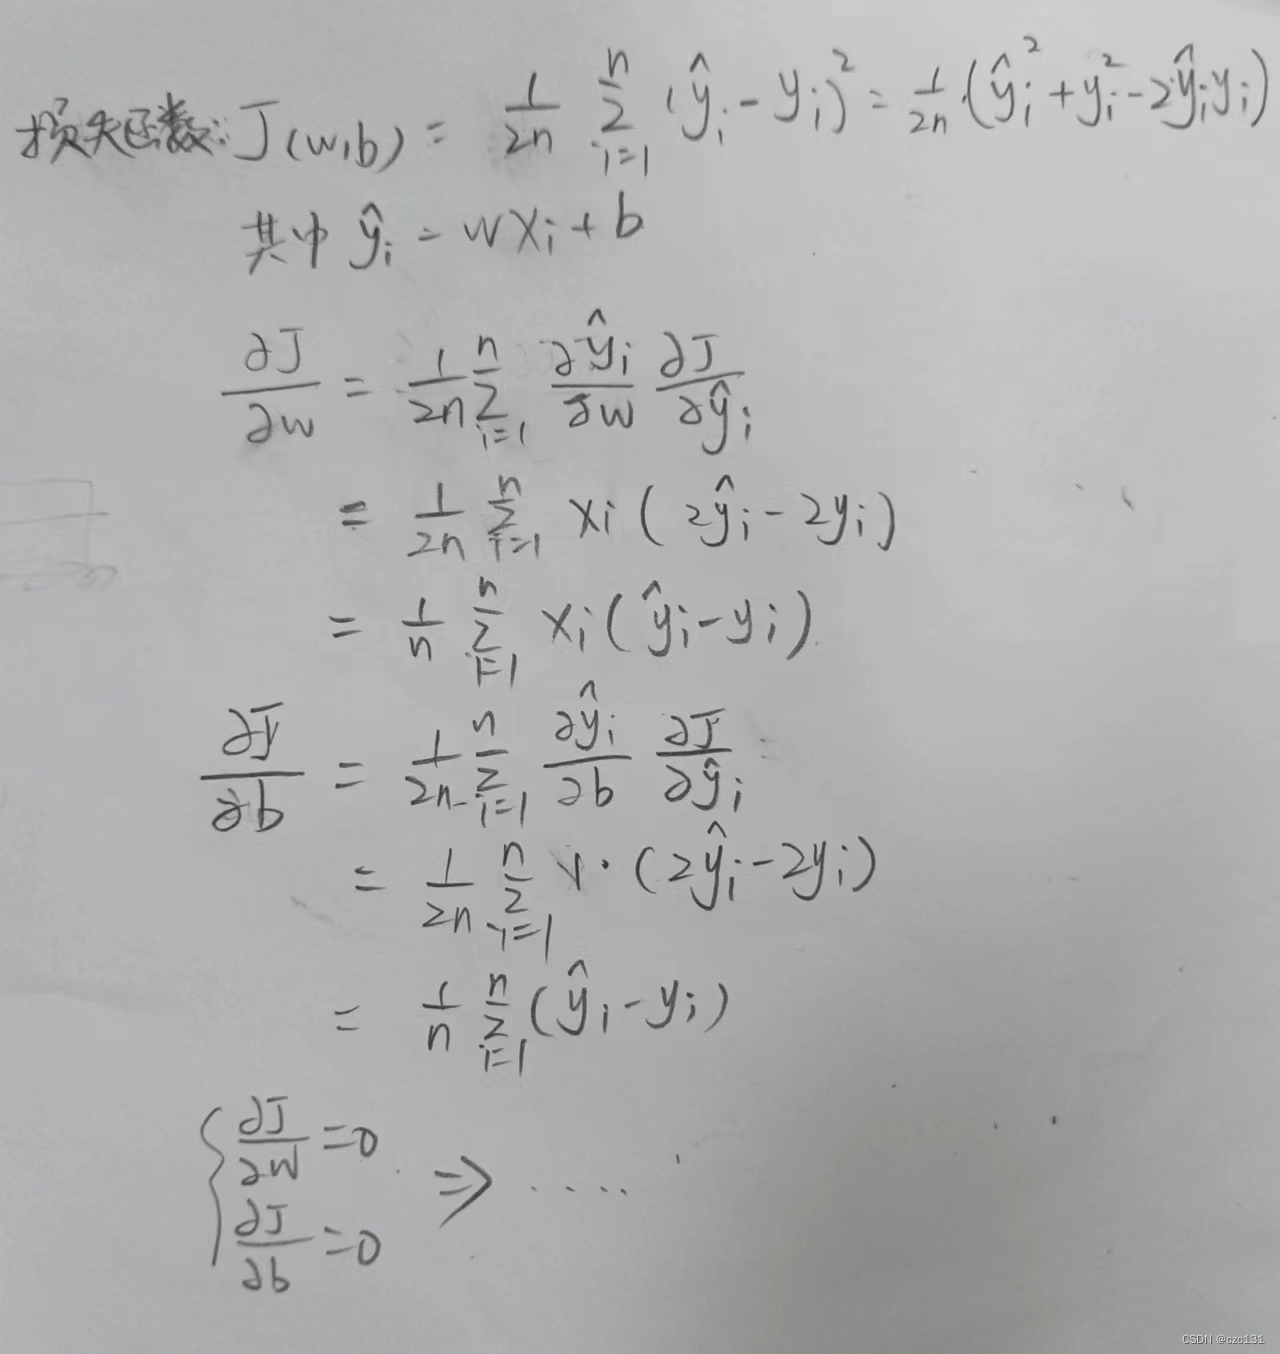 损失函数: J(w,b) = 1/2n Σ_{i=1}^{n} (ŷᵢ - yᵢ)² = 1/2n (ŷᵢ² + yᵢ² - 2ŷᵢyᵢ)
其中 ŷᵢ = wxᵢ + b
∂J/∂w = 1/2n Σ_{i=1}^{n} ∂ŷᵢ/∂w ∂J/∂ŷᵢ
= 1/2n Σ_{i=1}^{n} xᵢ (2ŷᵢ - 2yᵢ)
= 1/n Σ_{i=1}^{n} xᵢ (ŷᵢ - yᵢ)
∂J/∂b = 1/2n Σ_{i=1}^{n} ∂ŷᵢ/∂b ∂J/∂ŷᵢ
= 1/2n Σ_{i=1}^{n} 1 · (2ŷᵢ - 2yᵢ)
= 1/n Σ_{i=1}^{n} (ŷᵢ - yᵢ)
{ ∂J/∂w = 0
∂J/∂b = 0 ⇒ ....
CSDN @czc131